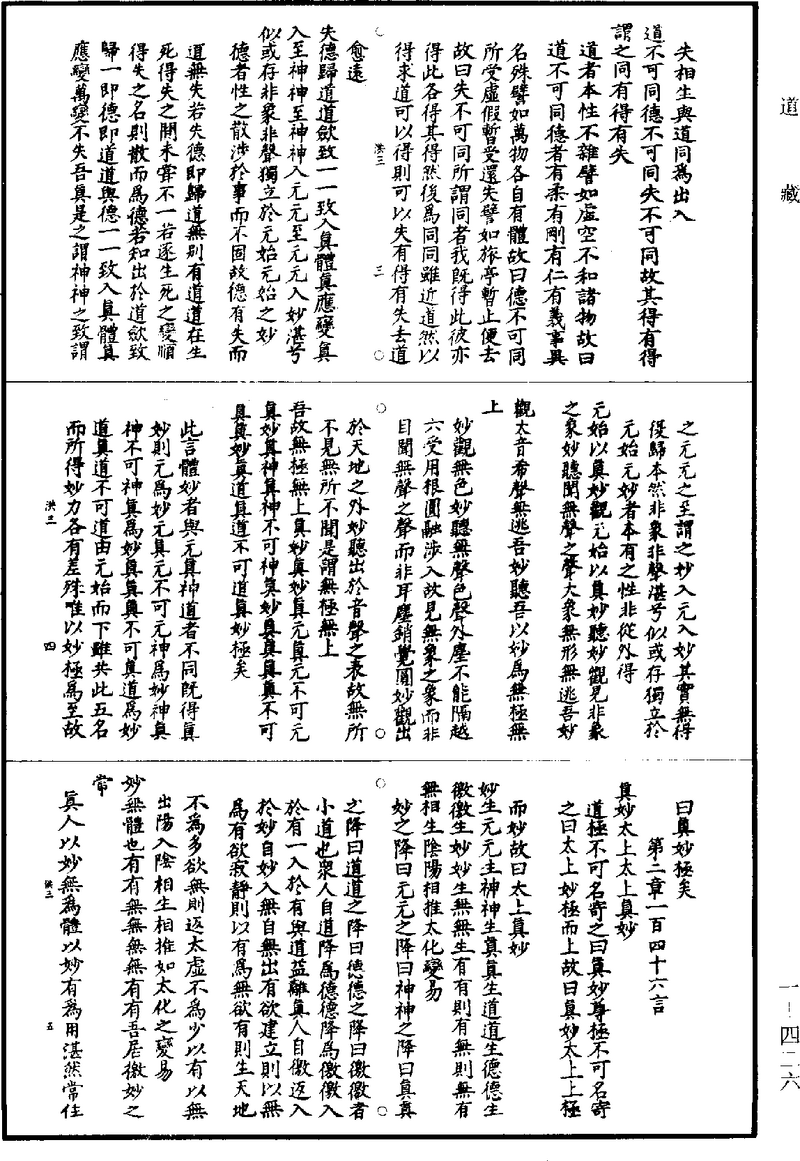 道藏
失相生與道同為出入
道不可同德不可同失不可同故其得有得
謂之同有得有失
道者本性不雜譬如虛空不和諸物故曰
道不可同德者有柔有剛有仁有義事異
名殊譬如萬物各自有體故曰德不可同
所受虛假暫受還失譬如旅亭暫止便去
故曰失不可同所謂同者我既得此彼亦
得此各得其得然後為同同雖近道然以
得求道可以得則可以失有得有失去道
洪三
三
愈遠
失德歸道道歛致一一致入真體真應變真
入至神神至神神入元元至元元入妙湛兮
似或存非象非聲獨立於元始元始之妙
德者性之散涉於事而不固故德有失而
道無失若失德即歸道無別有道道在生
死得失之間未嘗不一若逐生死之變順
得失之名則散而為德若知出於道歛致
歸一即德即道道與德一一致入真體真
應變萬變不失吾真是之謂神神之致謂
之元元之至謂之妙入元入妙其實無得
復歸本然非象非聲湛兮似或存獨立於
元始元妙者本有之性非從外得
元始以真妙觀元始以真妙聽妙觀見非象
之象妙聽聞無聲之聲大象無形無逃吾妙
觀太音希聲無逃吾妙聽吾以妙為無極無
上
妙觀無色妙聽無聲色聲外塵不能隔越
六受用根圓融涉入故見無象之象而非
目聞無聲之聲而非耳塵銷覺圓妙觀出
於天地之外妙聽出於音聲之表故無所
不見無所不聞是謂無極無上
吾故無極無上真妙真妙元真元不可元
真妙真神真神不可神真妙真真真真不可
真真妙真道真道不可道真妙極矣
此言體妙者與元真神道者不同既得真
妙則元為妙元真元不可元神為妙神真
神不可神真為妙真真真不可真道為妙
道真道不可道由元始而下雖共此五名
而所得妙力各有差殊唯以妙極為至故
洪三
四
曰真妙極矣
第二章一百四十六言
真妙太上太上真妙
道極不可名寄之曰真妙尊極不可名寄
之曰太上妙極而上故曰真妙太上上極
而妙故曰太上真妙
妙生元元主神神生真真生道道生德德生
徼徼生妙妙生無無生有有則有無則無有
無相生陰陽相推太化變易
妙之降曰元元之降曰神神之降曰真真
之降曰道道之降曰德德之降曰徼徼者
小道也眾人自道降為德德降為徼徼入
於有一入於有與道益離真人自徼返入
於妙自妙入無自無出有欲建立則以無
為有欲寂靜則以有為無欲有則生天地
不為多欲無則返太虛不為少以有以無
出陽入陰相生相推如太化之變易
妙無體也有有無無無有有吾居徼妙之
常
真人以妙無為體以妙有為用湛然常住
洪三
五
一－四二六